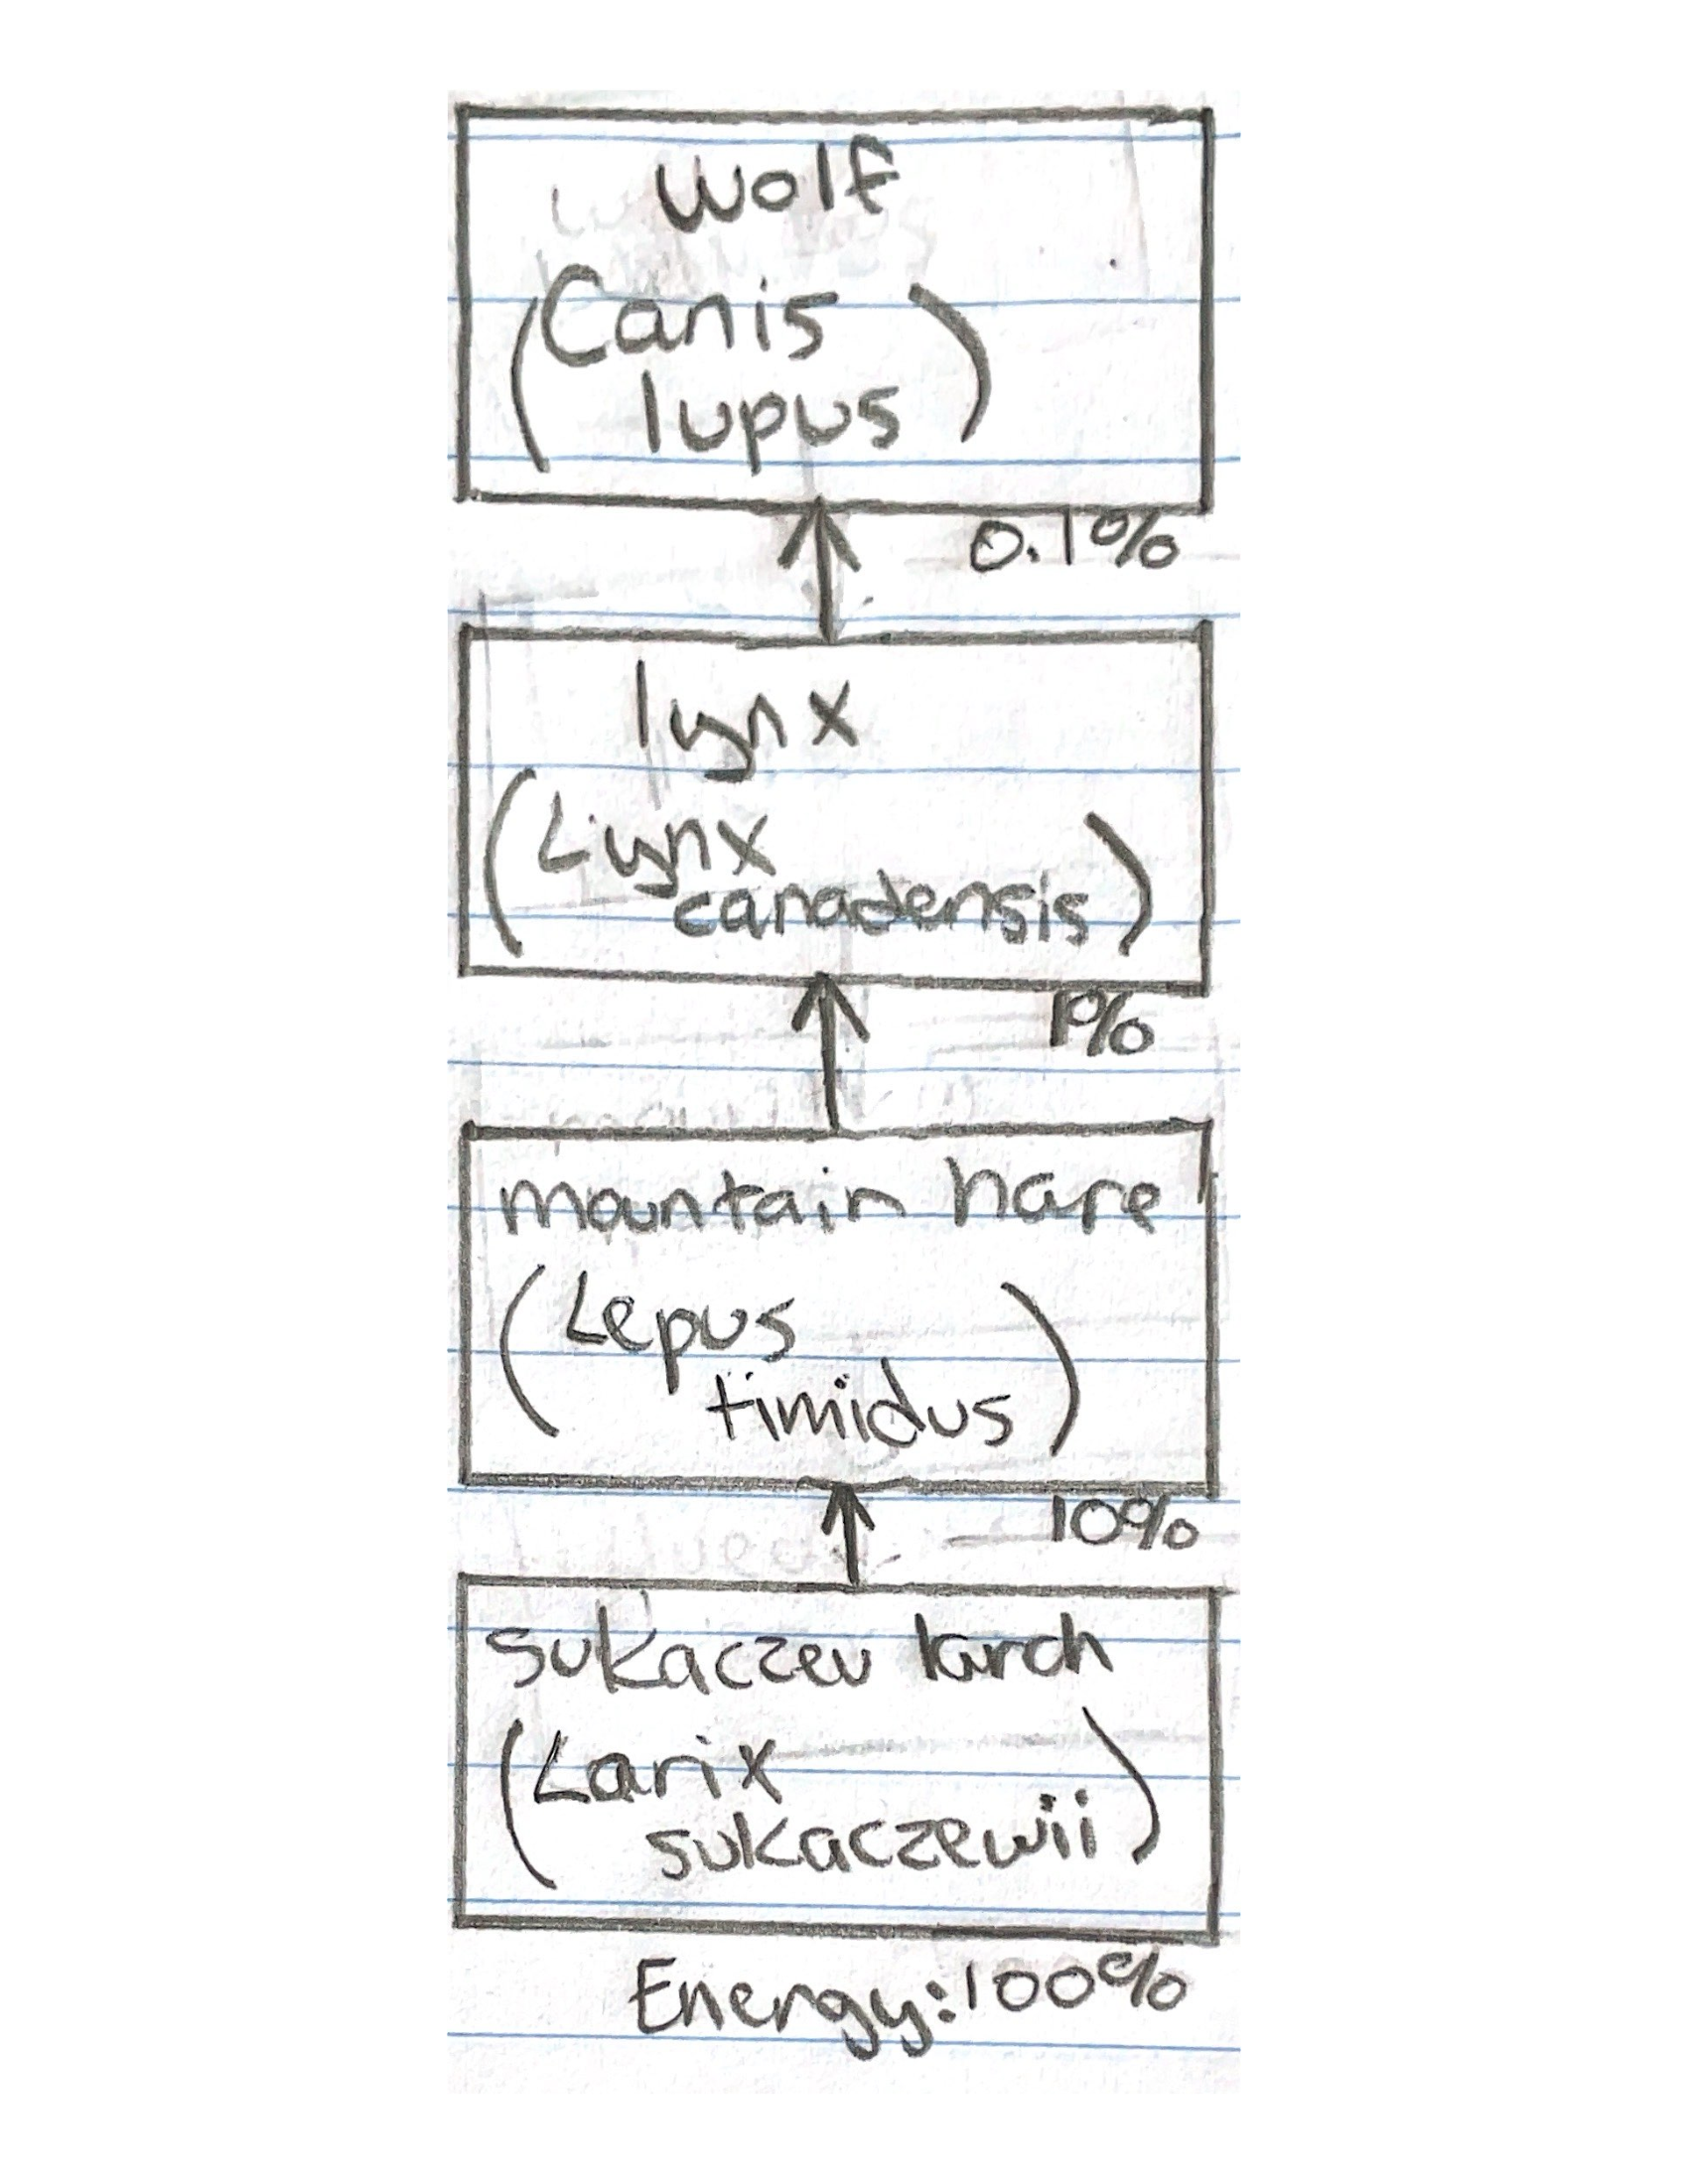 wolf
(Canis
lupus)
0.1%
lynx
(Lynx
canadensis)
1%
mountain hare
(Lepus
timidus)
10%
sukaczev larch
(Larix
sukaczewii)
Energy:100%